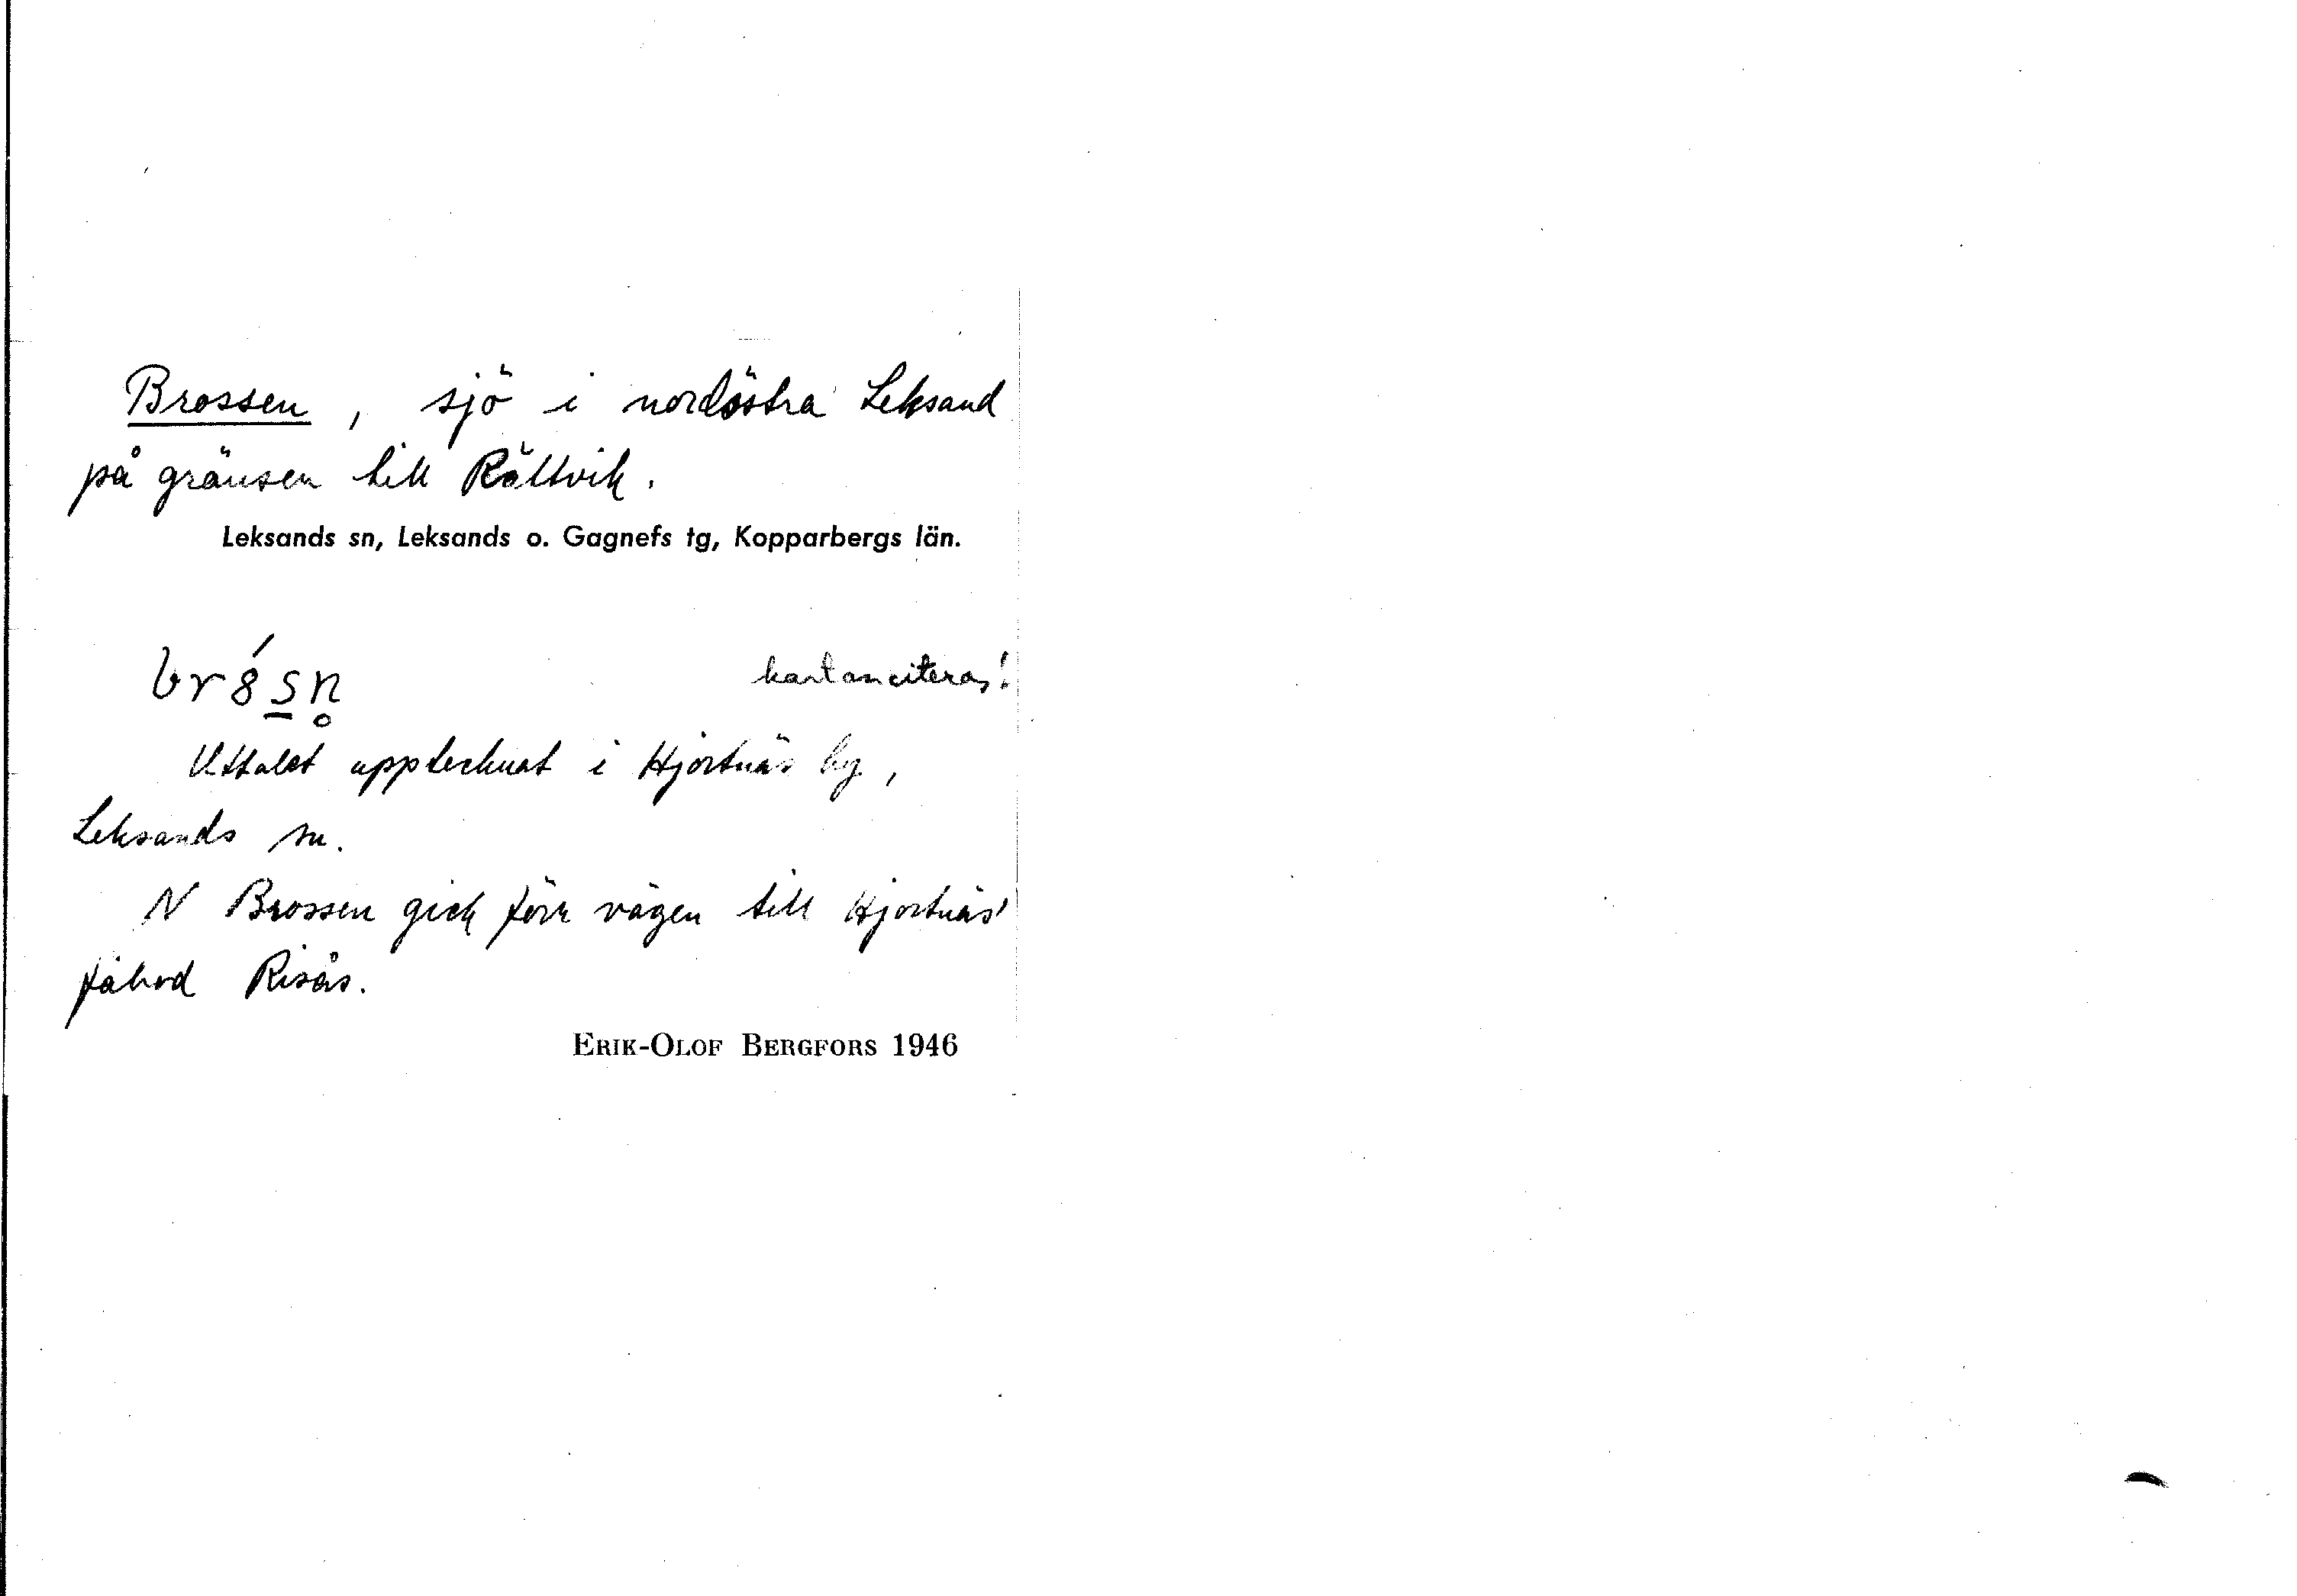 Brossen, sjö i nordöstra Leksand
på gränsen till Rättvik.
Leksands sn, Leksands o. Gagnefs tg, Kopparbergs län.
br8́s̲n̥
Uttalet upptecknat i Hjortnäs by,
Leksands sn.
N Brossen gick förr vägen till Hjortnäs'
fäbod Risås.
ERIK-OLOF BERGFORS 1946